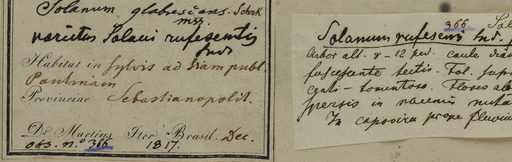 Solanum glabrescens. Schrk
msc.
varietas Solani rufescentis
Habitat in Sylvis ad viam publ.
Paulinam
Provinciae Sebastianopolit.
De Martius Iter Brasil. Dec.
obs. n. 366 1817.
366 Sol
Solanum rufescens
Arbor alt. 8-12 ped. caule
fuscescente tectis. Fol.
tomentosa. Flores
spersis in racemis
In capoeira prope fluvium